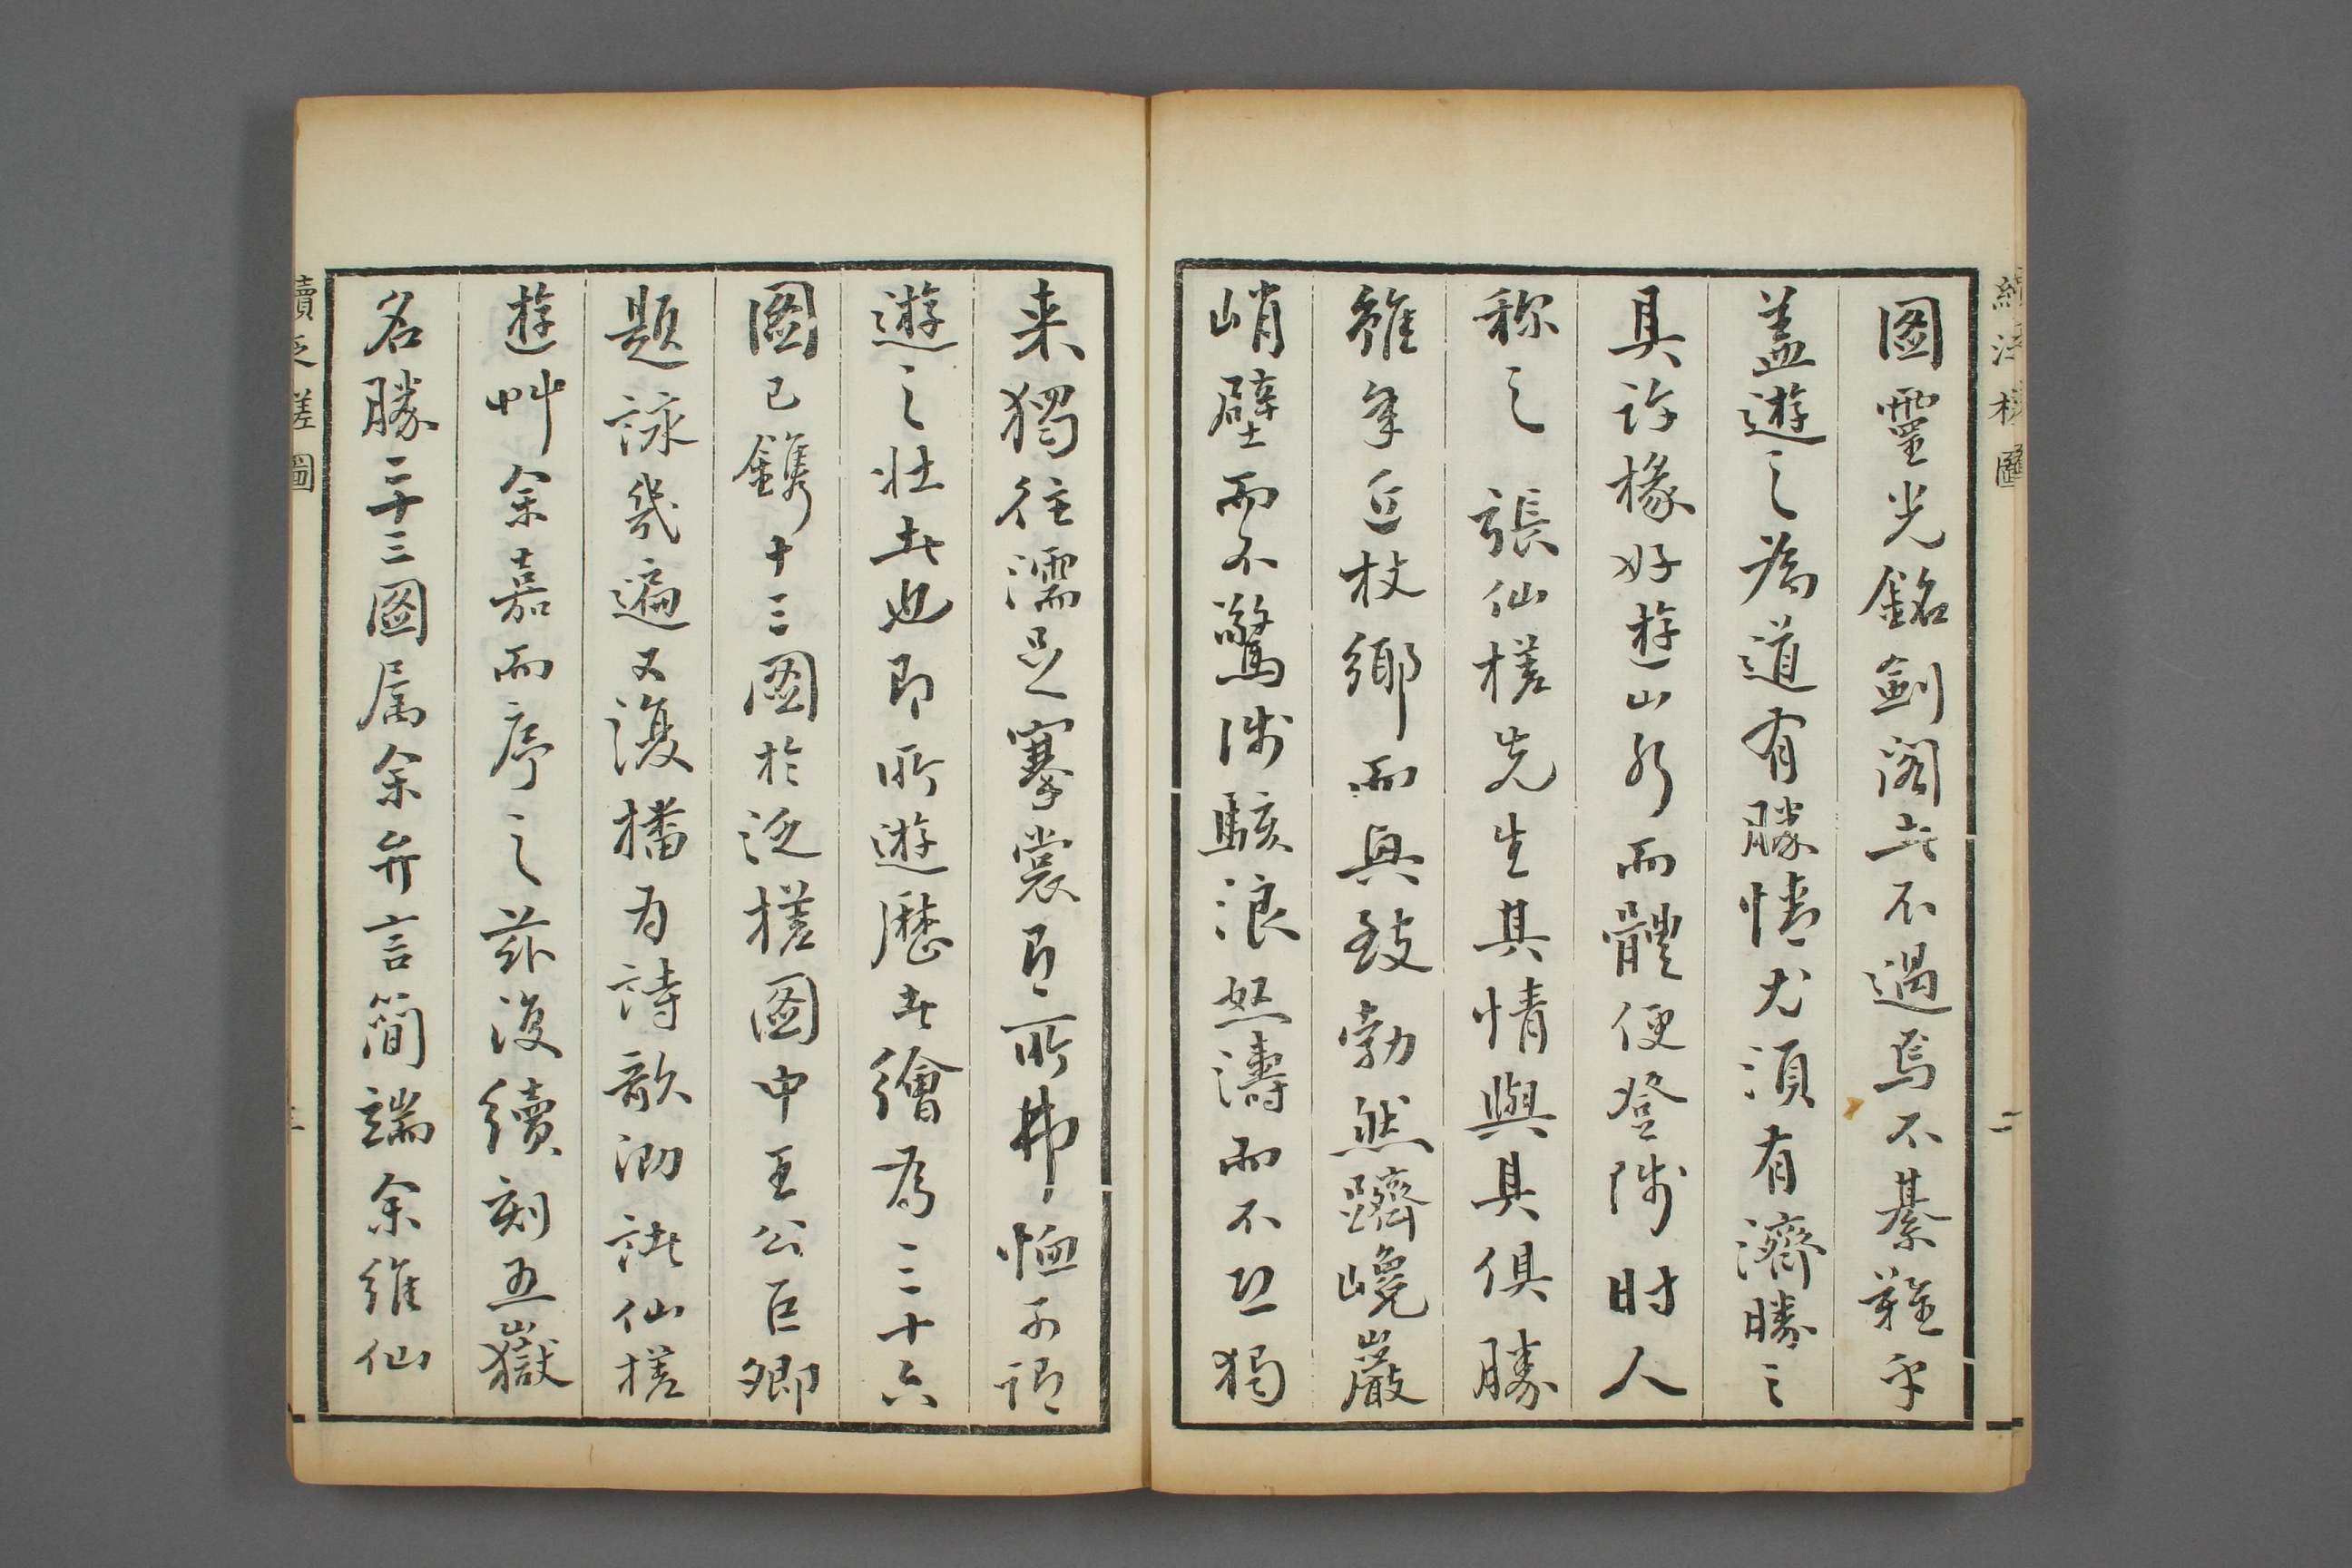 續泛槎圖
二
圖靈光銘劍閣亦不過焉不綦難乎
蓋遊之為道有勝情尤須有濟勝之
具許椽好遊山水而體便登陟時人
稱之張仙槎先生其情與具俱勝
雖年近杖鄉而興致勃然躋巉巖
峭壁而不驚涉駭浪怒濤而不恐獨
来獨往濡足褰裳有所弗恤可謂
遊之壯者也即所遊歷者繪為三十六
圖已鐫十三圖於泛槎圖中王公巨卿
題詠幾遍又復播為詩歌泐誌仙槎
遊艸余嘉而序之茲復續刻五嶽
名勝二十三圖属余弁言簡端余維仙
續泛槎圖
三